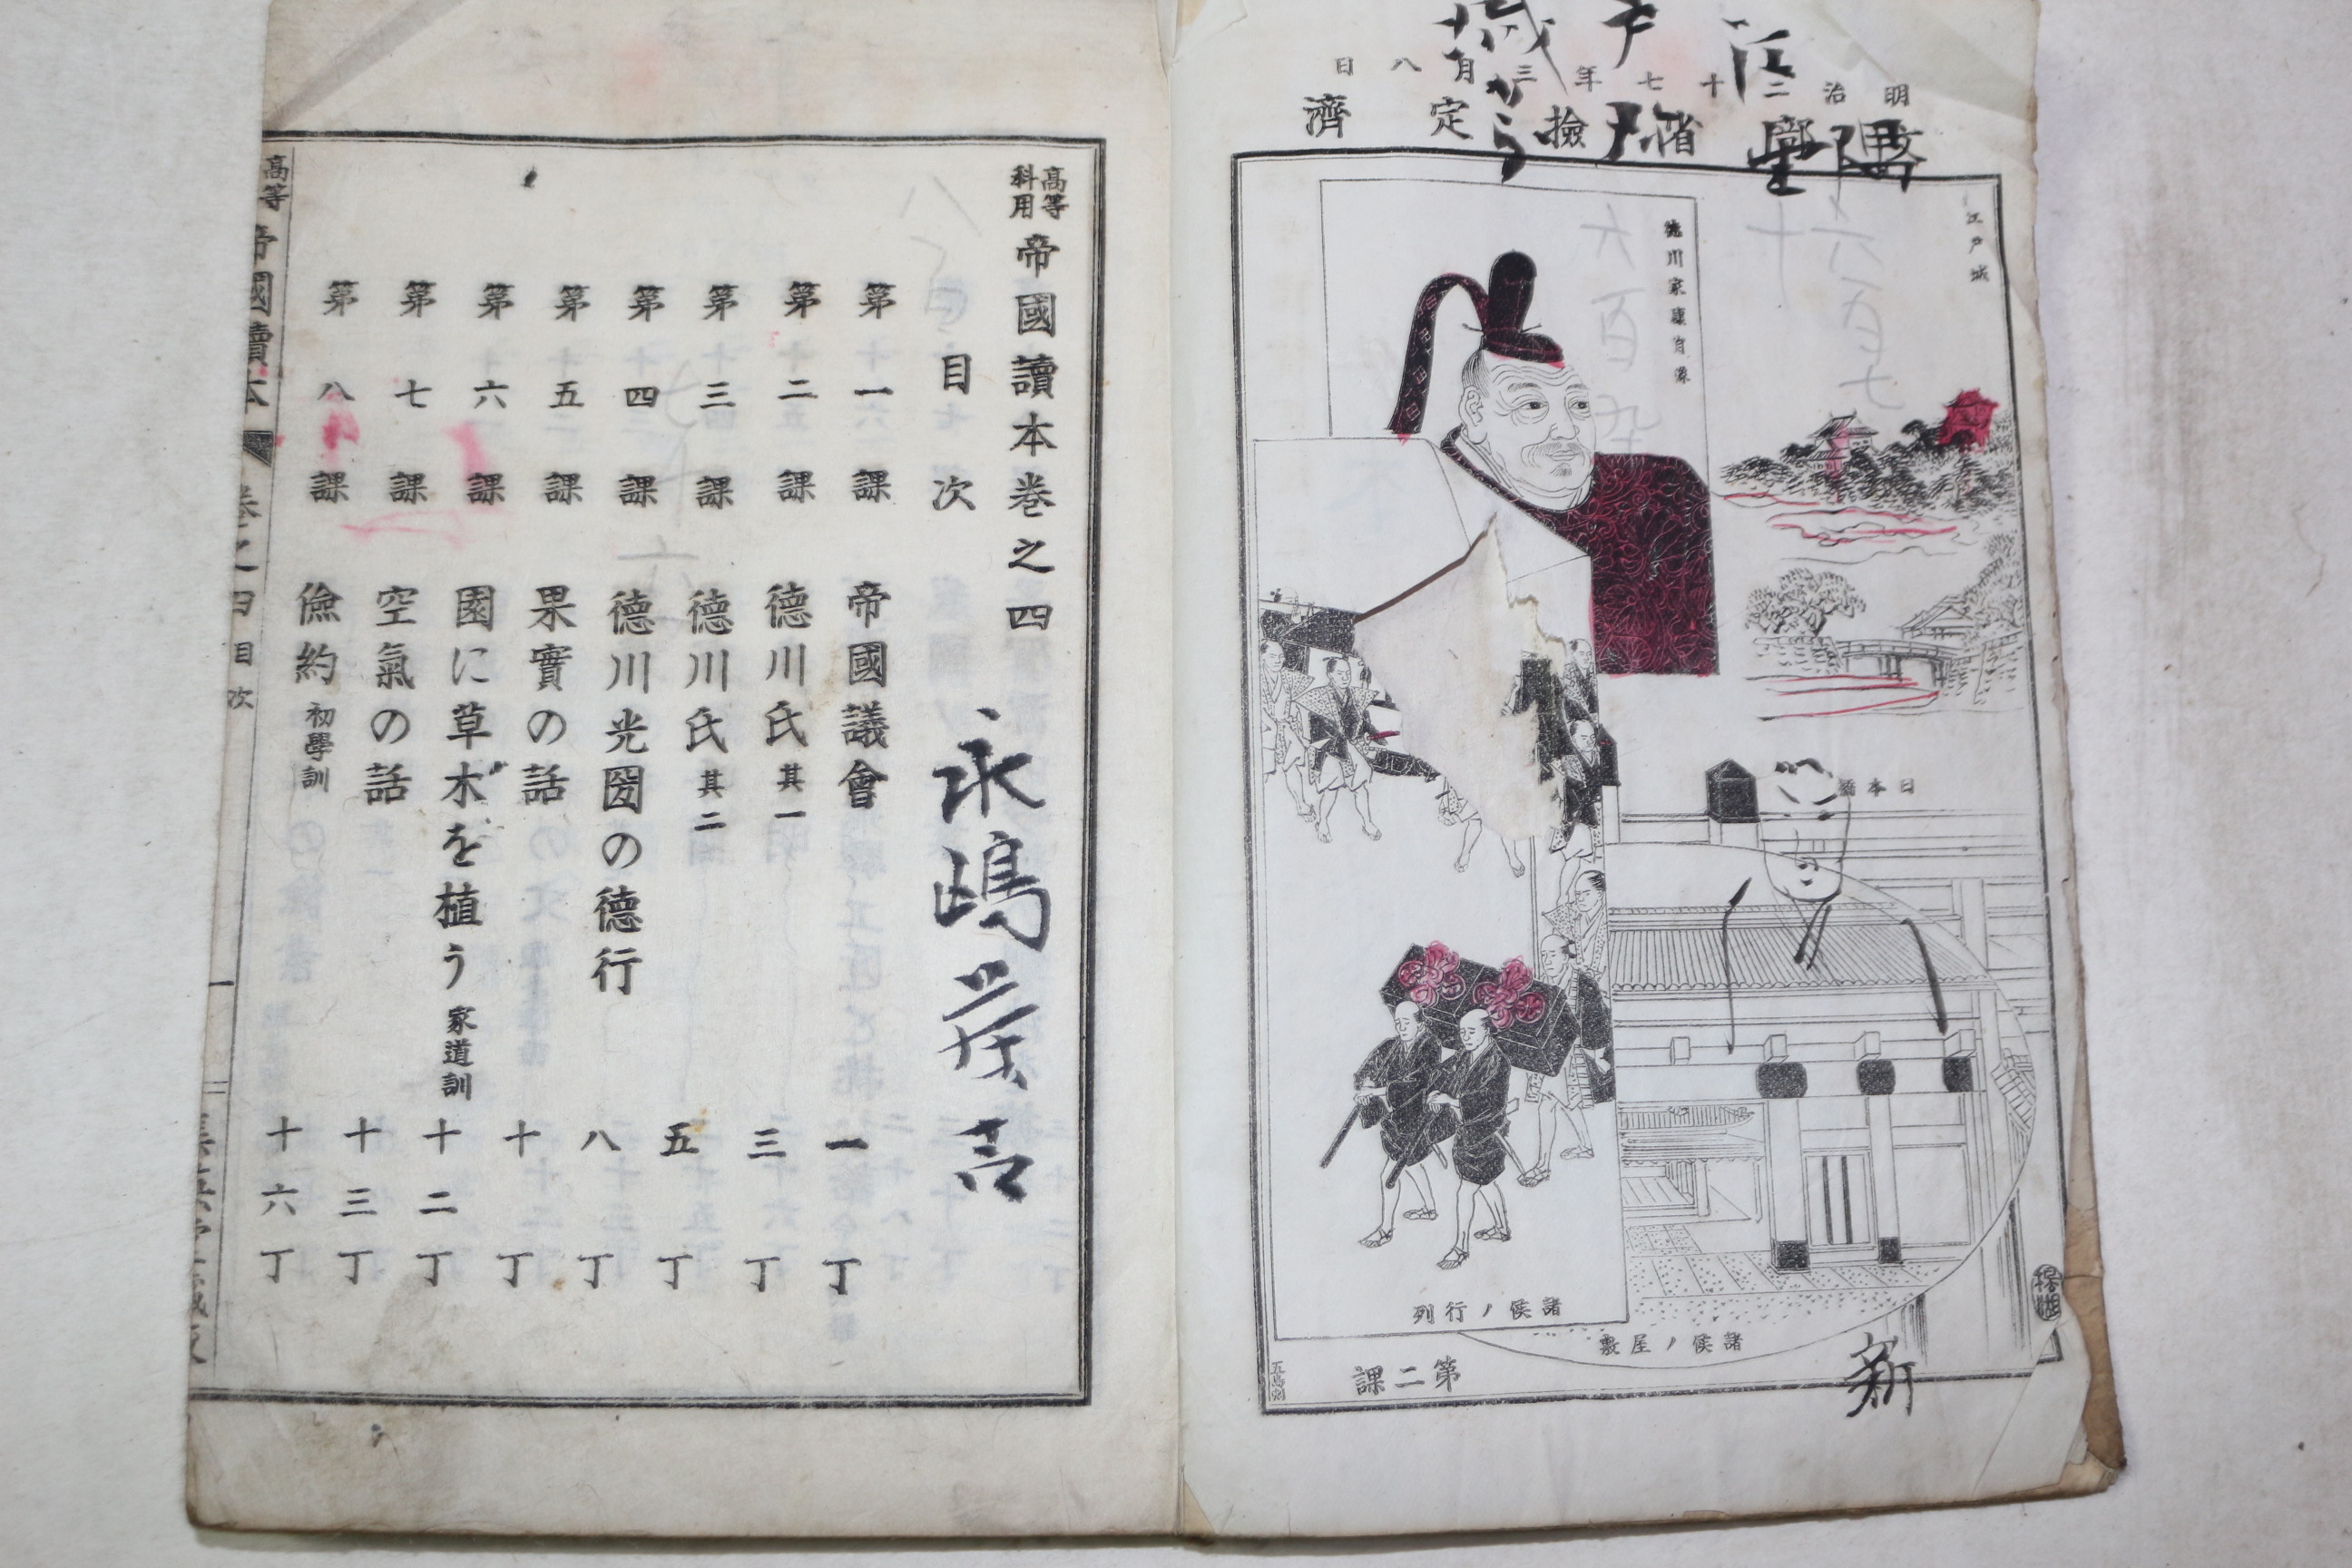 明治二十七年三月八日
文部省檢定濟
江戸城
徳川家康肖像
日本橋
諸侯ノ行列
諸侯ノ屋敷
第二課
新
高等科用 帝國讀本卷之四
目次
永嶋
第一課 帝國議會 一丁
第二課 德川氏 其一 三丁
第三課 德川氏 其二 五丁
第四課 德川光圀の德行 八丁
第五課 果實の話 十丁
第六課 園に草木を植う 家道訓 十二丁
第七課 空氣の話 十三丁
第八課 儉約 初學訓 十六丁
高等 帝國讀本 卷之四 目次 一